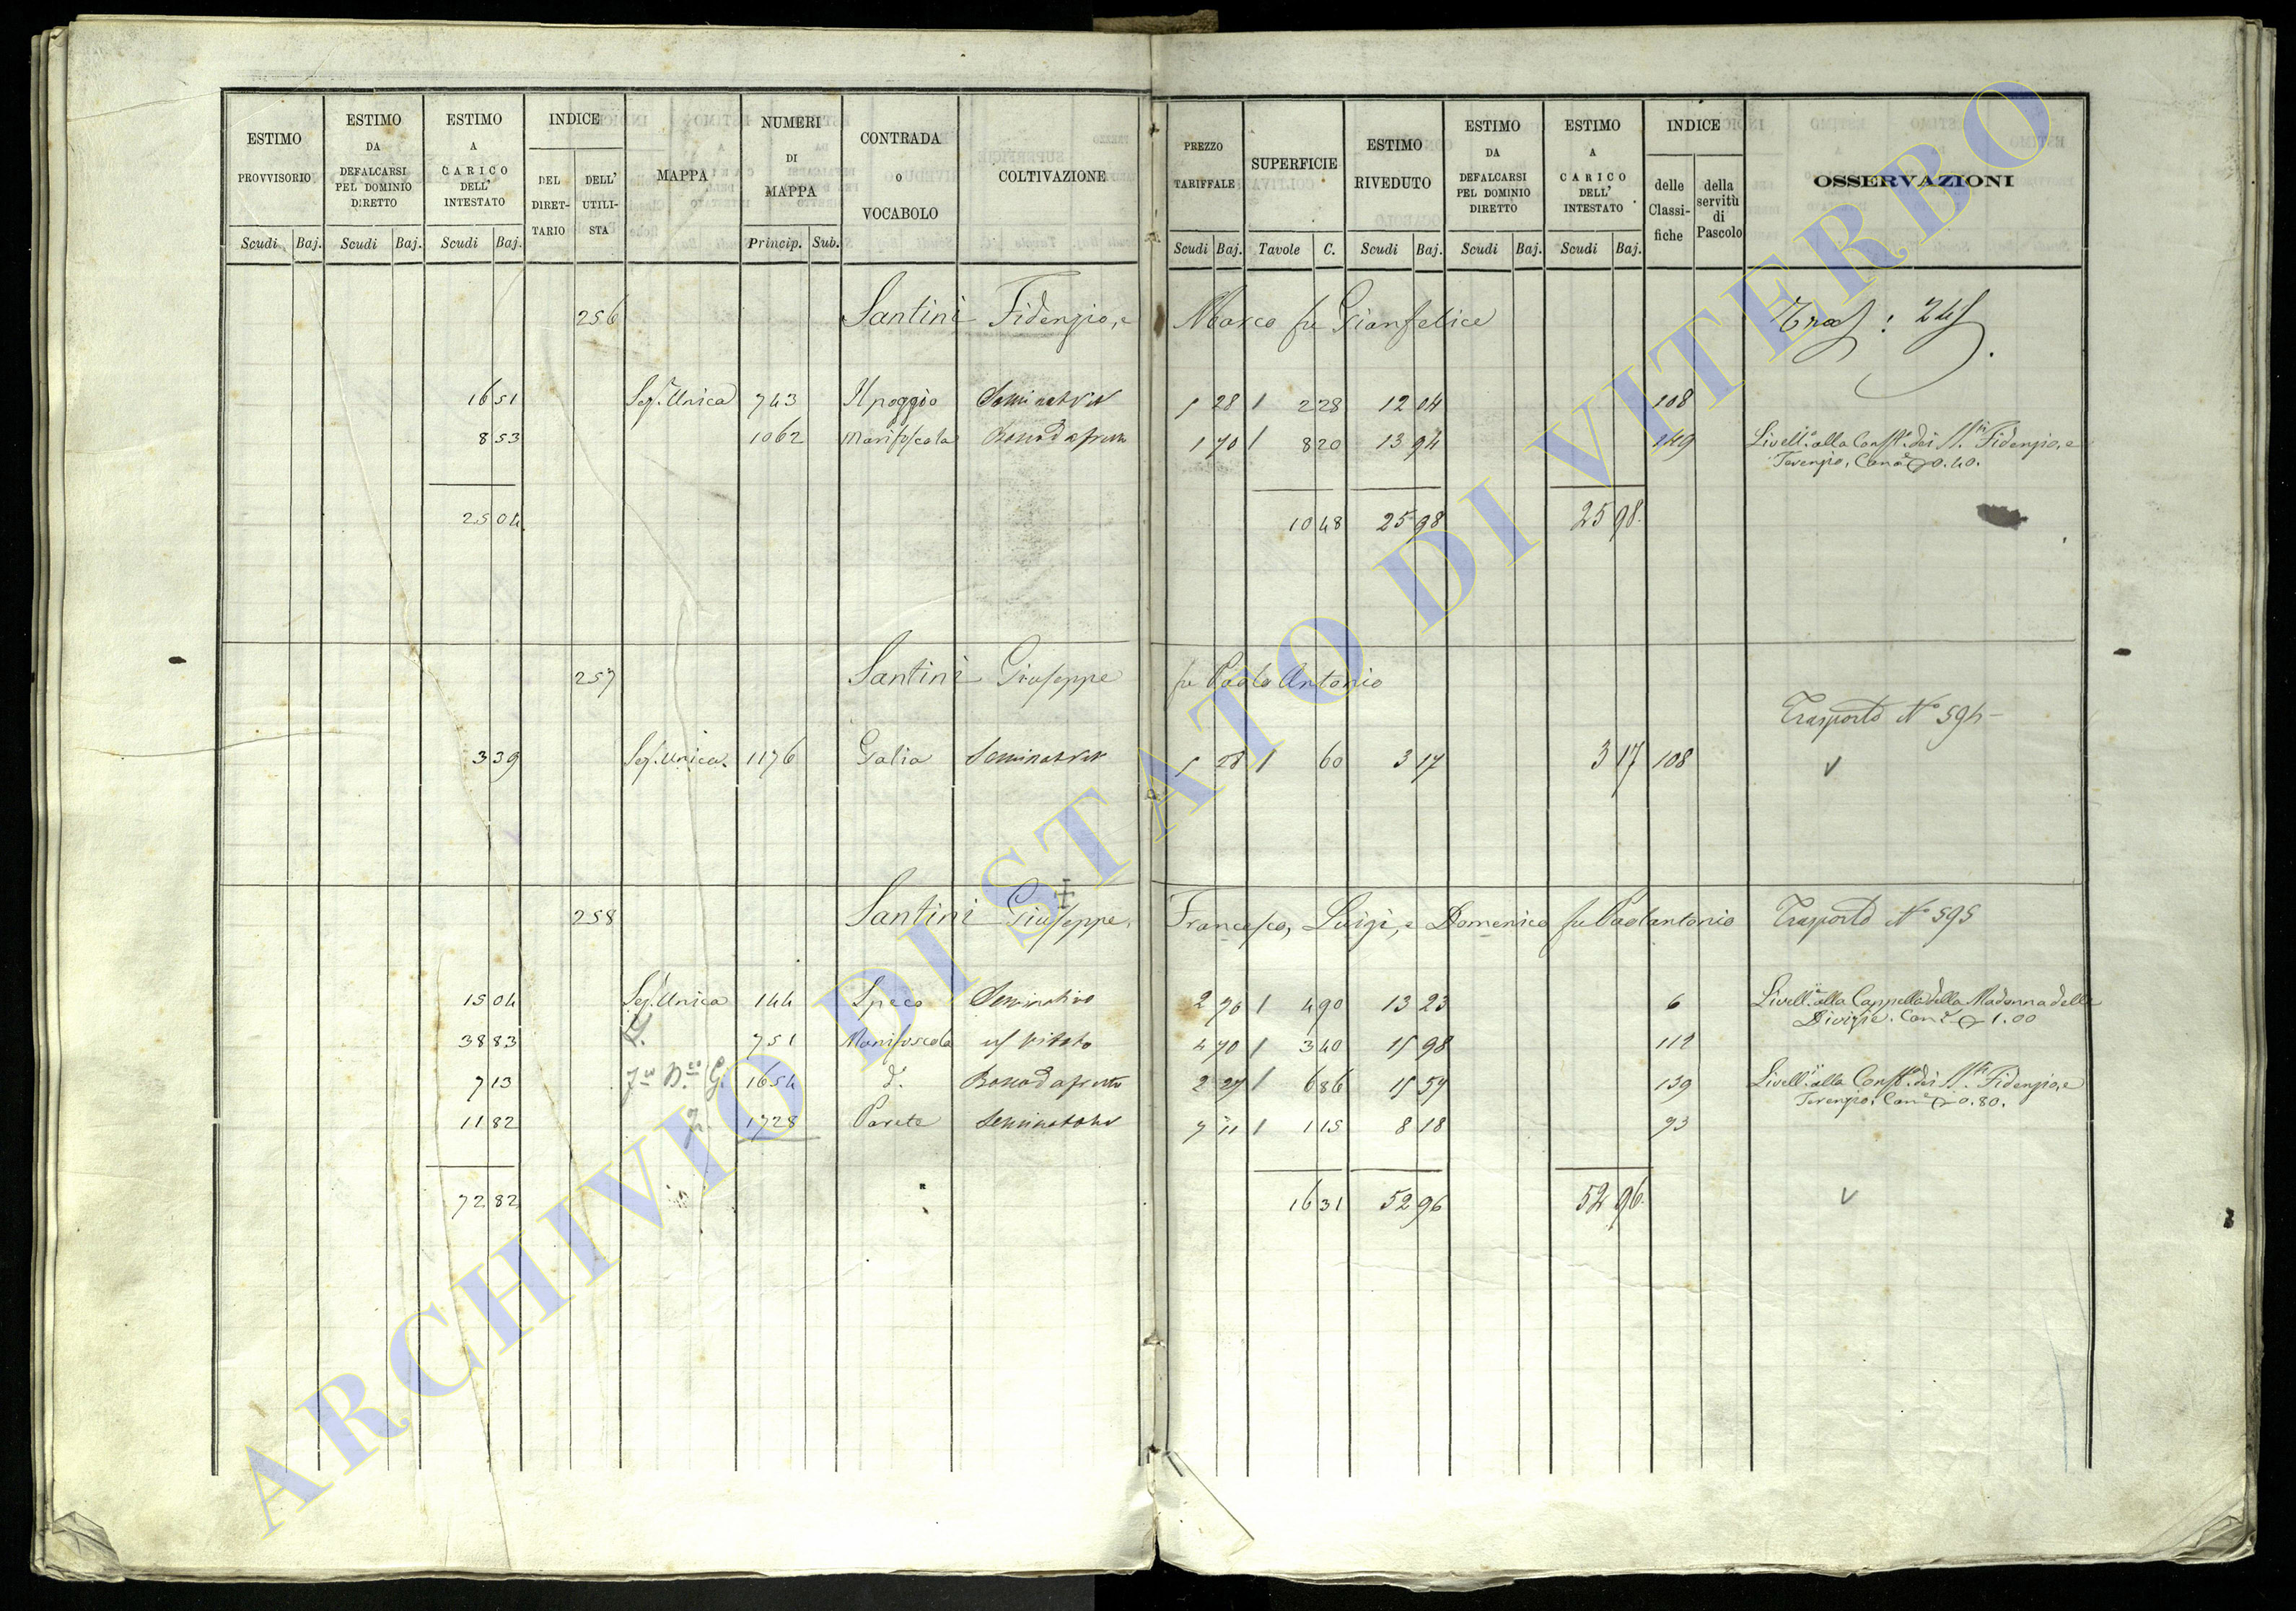 ESTIMO PROVVISORIO Scudi Baj.
ESTIMO DA DEFALCARSI PEL DOMINIO DIRETTO Scudi Baj.
ESTIMO A CARICO DELL' INTESTATO Scudi Baj.
INDICE DEL DIRET-TARIO DELL' UTILI-STA
MAPPA
NUMERI DI MAPPA Princip. Sub.
CONTRADA O VOCABOLO
COLTIVAZIONE
PREZZO TARIFFALE Scudi Baj.
SUPERFICIE Tavole C.
ESTIMO RIVEDUTO Scudi Baj.
ESTIMO DA DEFALCARSI PEL DOMINIO DIRETTO Scudi Baj.
ESTIMO A CARICO DELL' INTESTATO Scudi Baj.
INDICE delle Classi-fiche della servitù di Pascolo
OSSERVAZIONI
256 Santini Fidenzio, e Marco fu Gianfelice
16 51 Sez. Unica 743 Il poggio 28 2 28 12 04 108
8 53 1062 1 70 8 20 13 94 149 Livell. alla Conf. dei SS. Fidenzio, e
Terenzio, Can. 0.40.
25 04 10 48 25 98 25 98
257 Santini Giuseppe fu Paolo Antonio
Trasporto No 594
3 39 Sez. Unica 1176 Galia 28 60 3 17 3 17 108 v
258 Santini Giuseppe, Francesco, Luigi, e Domenico fu Paolantonio Trasporto No 595
15 04 Sez. Unica 144 Speco Seminativo 2 70 4 90 13 23 6 Livell. alla Cappella della Madonna delle
Divizie. Can. 1.00
38 83 751 vitato 4 70 3 40 15 98 112
7 13 1654 d. 2 27 6 86 15 57 139 Livell. alla Conf. dei SS. Fidenzio, e
Terenzio, Can. 0.80.
11 82 1728 Parete 7 11 1 15 8 18 93
72 82 16 31 52 96 52 96 v
ARCHIVIO DI STATO DI VITERBO